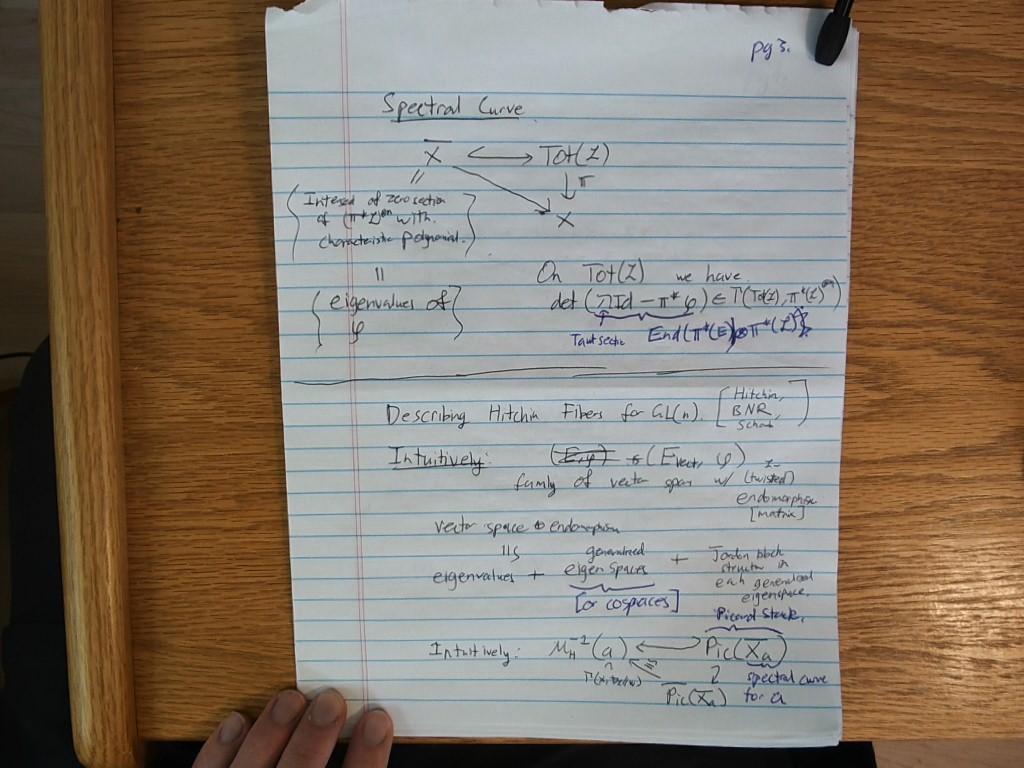 pg 3.
Spectral Curve
X̅ ⟷ Tot(L)
↓ π
X
=
{ Intersect of zero section
of (π*L)^{⊗n} with
characteristic polynomial. }
=
{ eigenvalues of
φ }
On Tot(L) we have
det (λId − π*φ) ∈ Γ(Tot(L), π*(L)^{⊗n})
Taut section End(π*(E)) ⊗ π*(L)
Describing Hitchin Fibers for GL(n). [ Hitchin,
BNR,
Schaub ]
Intuitively: (E, φ) (E vect, φ)
family of vector spaces w/ L-(twisted)
endomorphism
[matrix]
vector space + endomorphism
eigenvalues + generalized
eigen spaces + Jordan block
structure in
each generalized
eigenspace.
[or cospaces]
Picard Stack.
Intuitively: M_H^{-1}(a) ⟷ Pic(X̅_a)
spectral curve
for a
P̅ic(X̅_a)